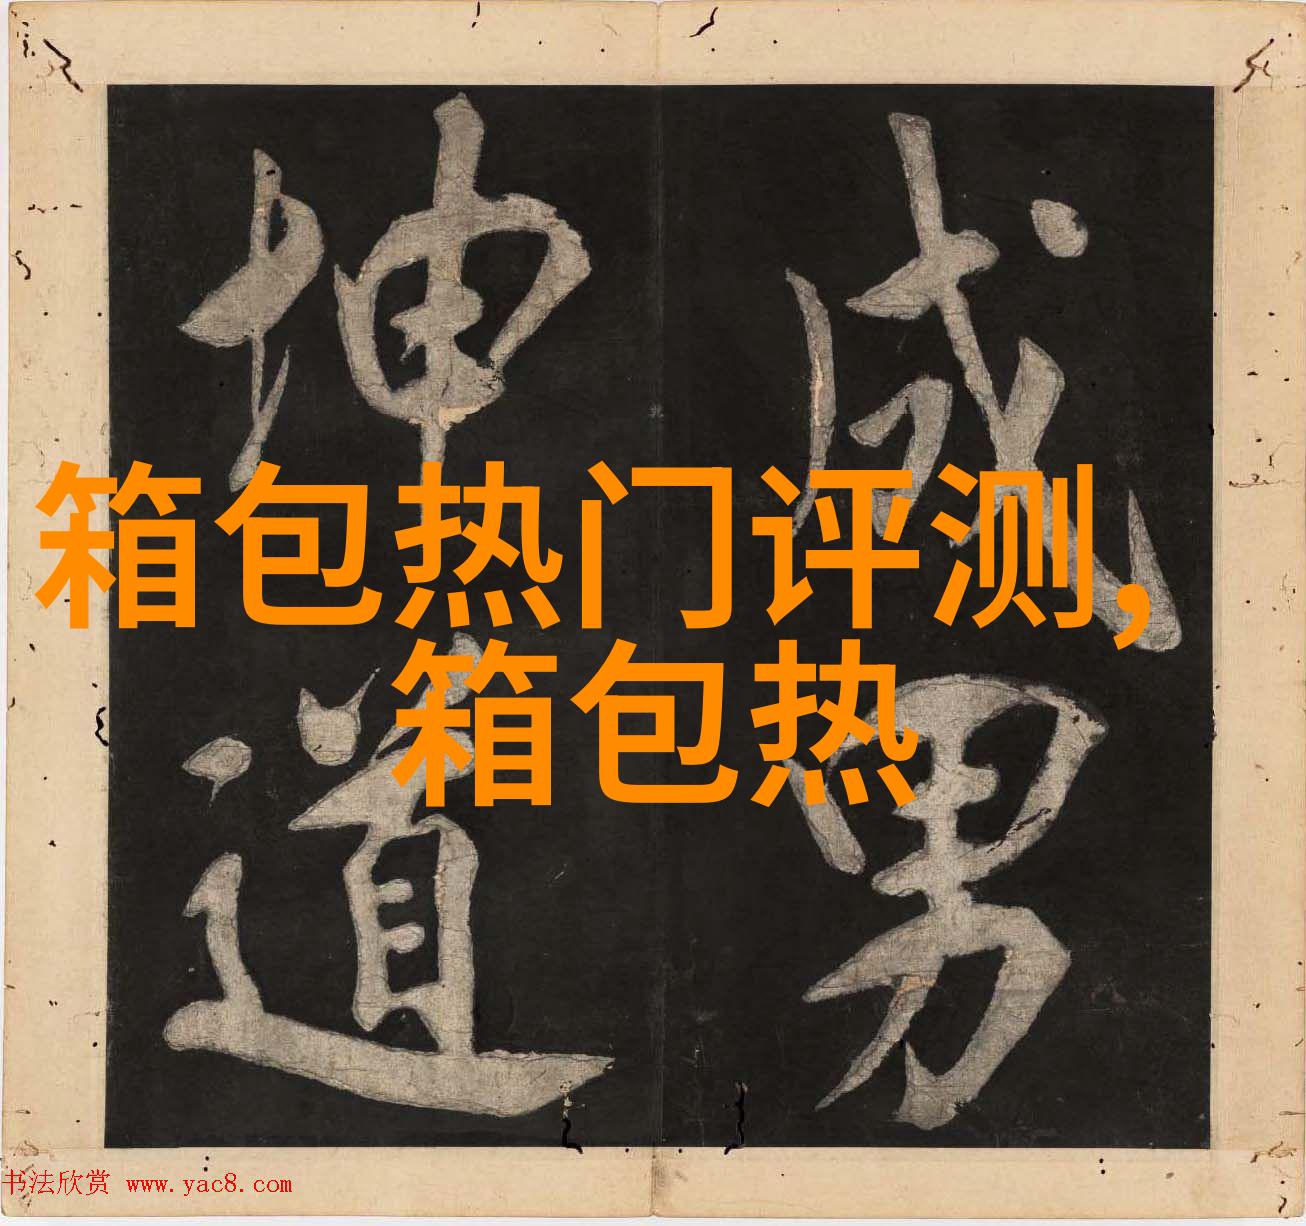 成男
坤道
箱包热门评测,
箱包热
书法欣赏 www.yac8.com